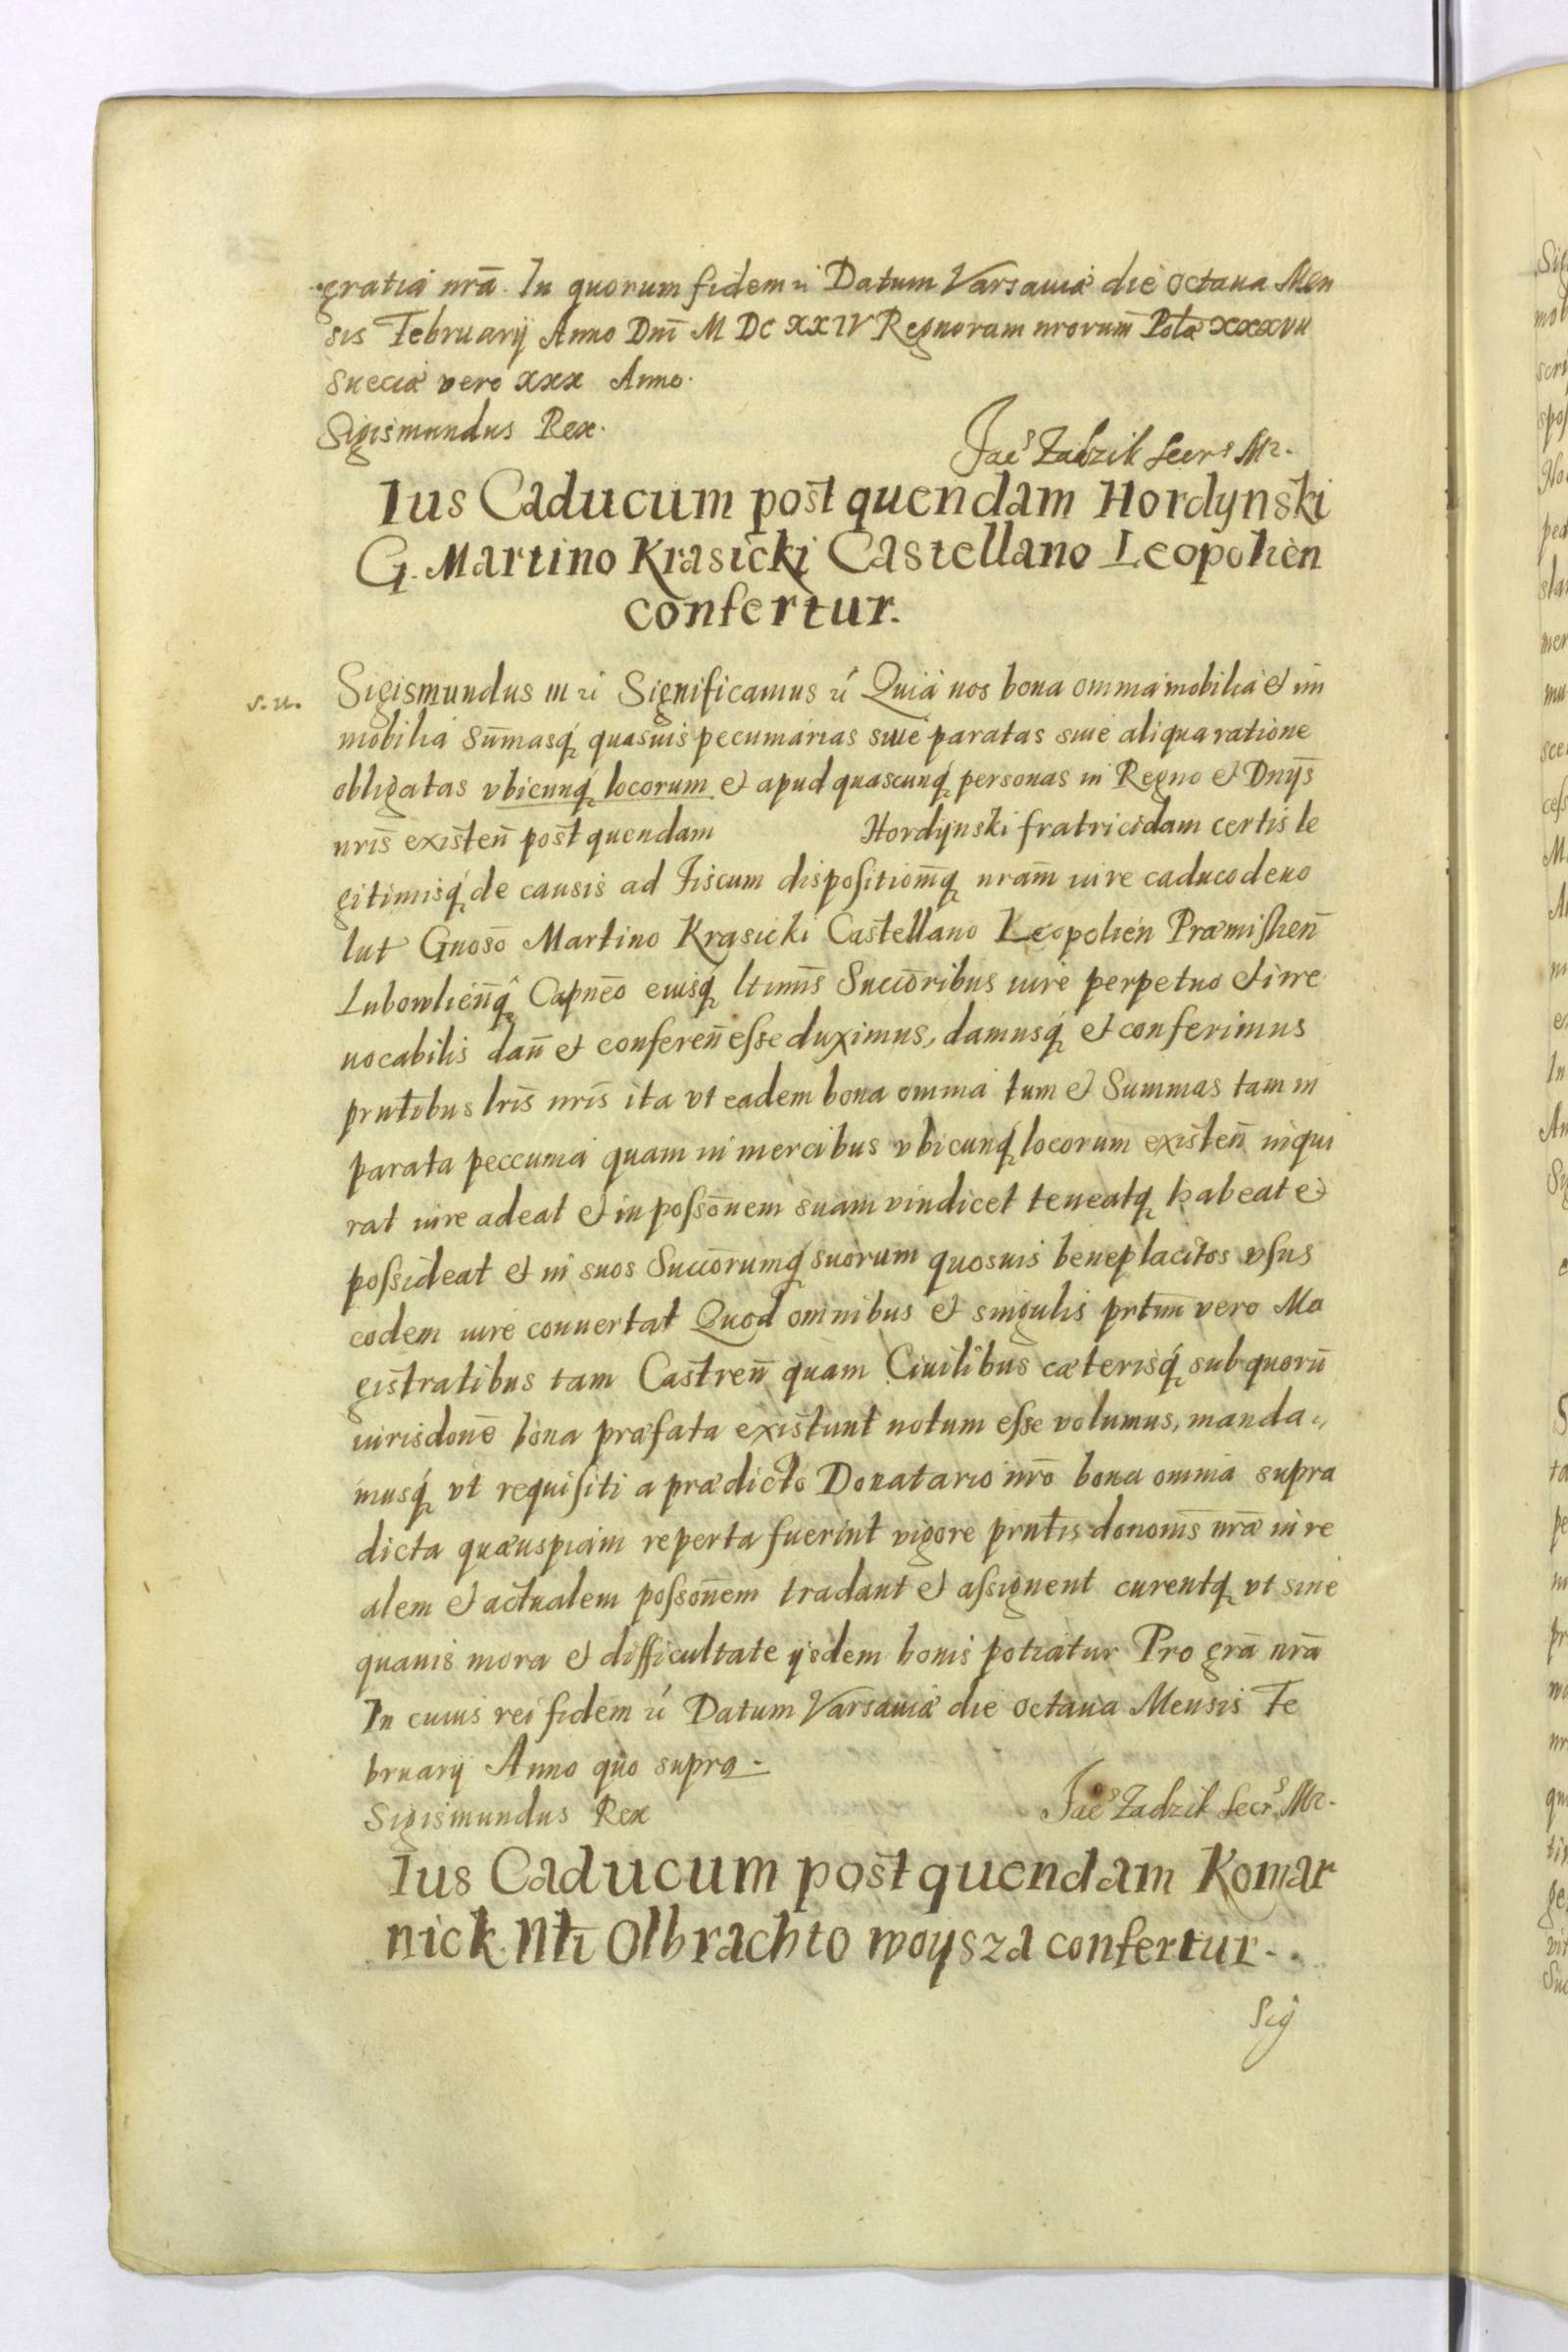 gratia nrã. In quorum fidem ꝛĉ Datum Varsaviæ die octaua Men
sis Februarij Anno Dni͂ M DC XXIV Regnorum nrorum͂ Polæ͂ XXXVII
Sueciæ vero XXX Anno.
Sigismundus Rex.
Jacs Zadzik Secrs Mr.
Ius Caducum post quendam Hordynski
G. Martino Krasicki Castellano Leopolien̄
confertur.
S. u.
Sigismundus III ꝛĉ Significamus ꝛĉ Quia nos bona omnia mobilia et im
mobilia Sum̄asq́ȝ quasuis pecuniarias siue paratas siue aliqua ratione
obligatas vbicunq́ȝ locorum et apud quascunq́ȝ personas in Regno et Dnijs̄
nris̄ existen̄ post quendam Hordynski fratricidam certis le
gitimisq́ȝ de causis ad Fiscum dispositiom̄qȝ nram̄ iure caduco deuo
lut Gnoso͂ Martino Krasicki Castellano Leopolien̄ Præmislien̄
Lubowlien̄q́ȝ Capneo͂ eiusq́ȝ ltimis̄ Succo͂ribus iure perpetuo et irre
uocabilis dan̄ et conferen̄ esse duximus, damusq́ȝ et conferimus
prnti͂bus lris̄ nris̄ ita vt eadem bona omnia tum et Summas tam in
parata peccunia quam in mercibus vbicunq́ȝ locorum existen̄ inqui
rat iure adeat et in posso͂nem suam vindicet teneatqȝ habeat et
possideat et in suos Succo͂rumq́ȝ suorum quosuis beneplacitos vsus
eodem iure conuertat Quod omnibus et singulis prtim̄ vero Ma
gistratibus tam Castren̄ quam Ciuilibus cæterisq́ȝ sub quorū
iurisdone͂ bona præfata existunt notum esse volumus, manda⸗
musq́ȝ vt requisiti a prædicto Donatario nro͂ bona omnia supra
dicta quæuspiam reperta fuerint vigore prntis͂ donoms͂ nræ͂ in re
alem et actualem posso͂nem tradant et assignent curentqȝ vt sine
quauis mora et difficultate ijsdem bonis potiatur Pro gra͂ nra͂
In cuius rei fidem ꝛĉ Datum Varsauiæ die octaua Mensis Fe
bruarij Anno quo supra.
Sigismundus Rex
Jacs Zadzik Secrs Mr.
Ius Caducum post quendam Komar
nick. Nłi Olbrachto Woysza confertur.
Sig